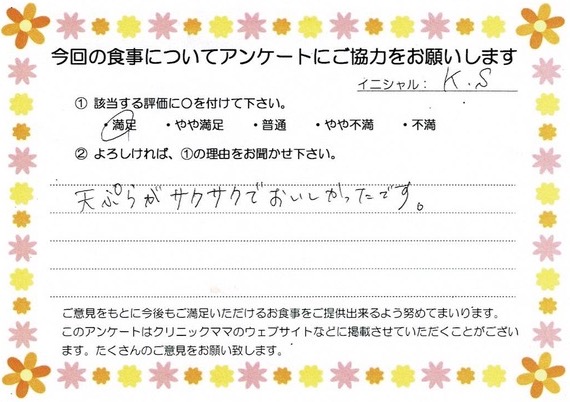 今回の食事についてアンケートにご協力をお願いします
イニシャル： K.S
① 該当する評価に○を付けて下さい。
・満足 ・やや満足 ・普通 ・やや不満 ・不満
② よろしければ、①の理由をお聞かせ下さい。
天ぷらがサクサクでおいしかったです。
ご意見をもとに今後もご満足いただけるお食事をご提供出来るよう努めてまいります。
このアンケートはクリニックママのウェブサイトなどに掲載させていただくことがござい
ます。たくさんのご意見をお願い致します。